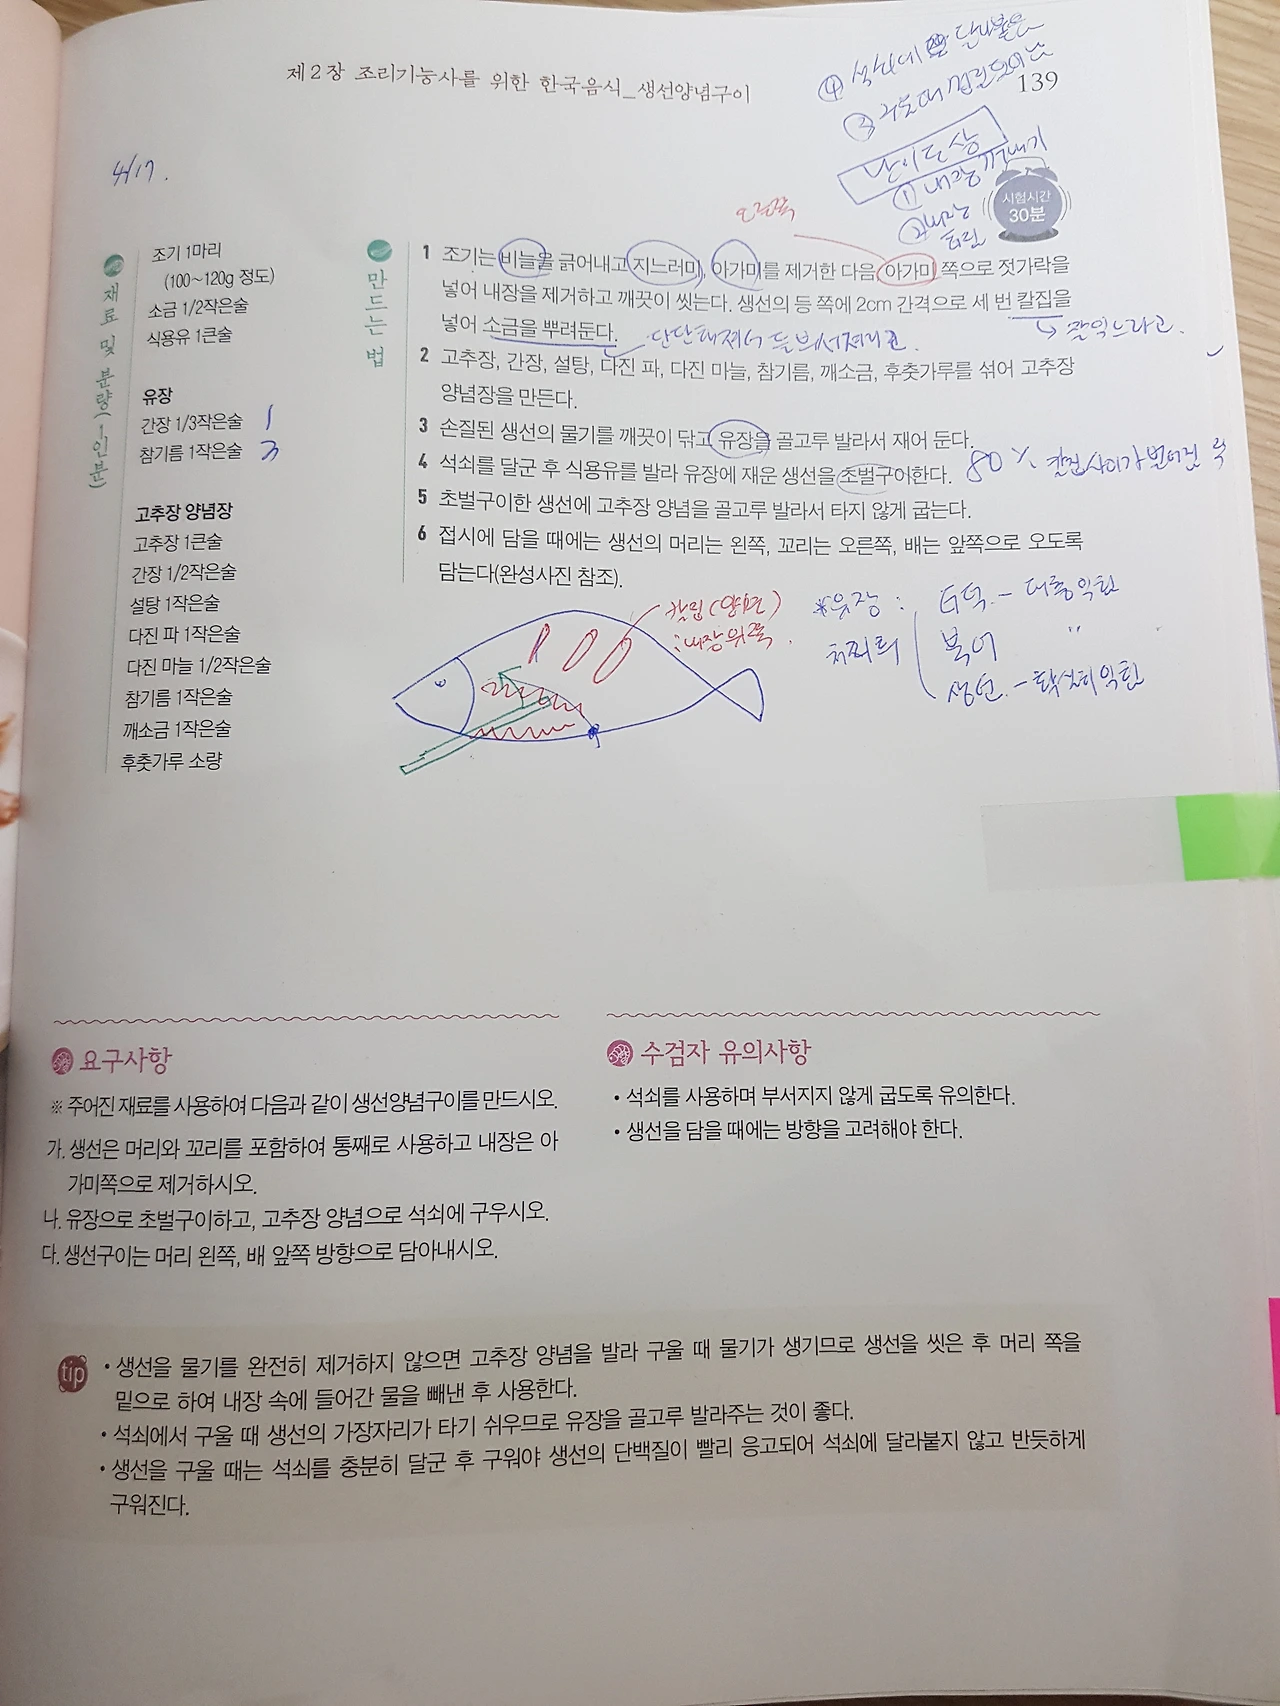 제2장 조리기능사를 위한 한국음식_생선양념구이
139
④ 석쇠에 달라붙은
③ 구울때
난이도 상
① 내장 꺼내기
②
4/17.
시험시간
30분
오른쪽
재료 및 분량(1인분)
조기 1마리
(100~120g 정도)
소금 1/2작은술
식용유 1큰술
유장
간장 1/3작은술 1
참기름 1작은술 3
고추장 양념장
고추장 1큰술
간장 1/2작은술
설탕 1작은술
다진 파 1작은술
다진 마늘 1/2작은술
참기름 1작은술
깨소금 1작은술
후춧가루 소량
만드는 법
1 조기는 비늘을 긁어내고 지느러미, 아가미를 제거한 다음, 아가미 쪽으로 젓가락을
넣어 내장을 제거하고 깨끗이 씻는다. 생선의 등 쪽에 2cm 간격으로 세 번 칼집을
넣어 소금을 뿌려둔다.
단단해져서 덜 부서지라고.
잘익으라고.
2 고추장, 간장, 설탕, 다진 파, 다진 마늘, 참기름, 깨소금, 후춧가루를 섞어 고추장
양념장을 만든다.
3 손질된 생선의 물기를 깨끗이 닦고 유장을 골고루 발라서 재어 둔다.
4 석쇠를 달군 후 식용유를 발라 유장에 재운 생선을 초벌구이한다.
80% 칼집사이가 벌어질
5 초벌구이한 생선에 고추장 양념을 골고루 발라서 타지 않게 굽는다.
6 접시에 담을 때에는 생선의 머리는 왼쪽, 꼬리는 오른쪽, 배는 앞쪽으로 오도록
담는다(완성사진 참조).
칼집(양면)
:내장위쪽.
*유장 : 더덕. - 대충익힘
처리 북어 〃
생선. - 확실히익힘
요구사항
※ 주어진 재료를 사용하여 다음과 같이 생선양념구이를 만드시오.
가. 생선은 머리와 꼬리를 포함하여 통째로 사용하고 내장은 아
가미쪽으로 제거하시오.
나. 유장으로 초벌구이하고, 고추장 양념으로 석쇠에 구우시오.
다. 생선구이는 머리 왼쪽, 배 앞쪽 방향으로 담아내시오.
수검자 유의사항
• 석쇠를 사용하며 부서지지 않게 굽도록 유의한다.
• 생선을 담을 때에는 방향을 고려해야 한다.
tip
• 생선을 물기를 완전히 제거하지 않으면 고추장 양념을 발라 구울 때 물기가 생기므로 생선을 씻은 후 머리 쪽을
밑으로 하여 내장 속에 들어간 물을 빼낸 후 사용한다.
• 석쇠에서 구울 때 생선의 가장자리가 타기 쉬우므로 유장을 골고루 발라주는 것이 좋다.
• 생선을 구울 때는 석쇠를 충분히 달군 후 구워야 생선의 단백질이 빨리 응고되어 석쇠에 달라붙지 않고 반듯하게
구워진다.